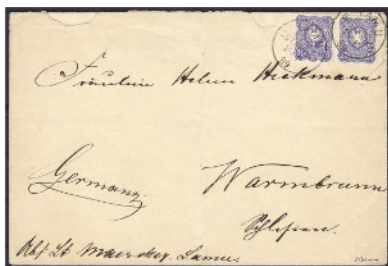 Fräulein Helene Heckmann
Germany.
Warmbrunn
Schlesien.
Abs. Lt Maercker. Lamu.